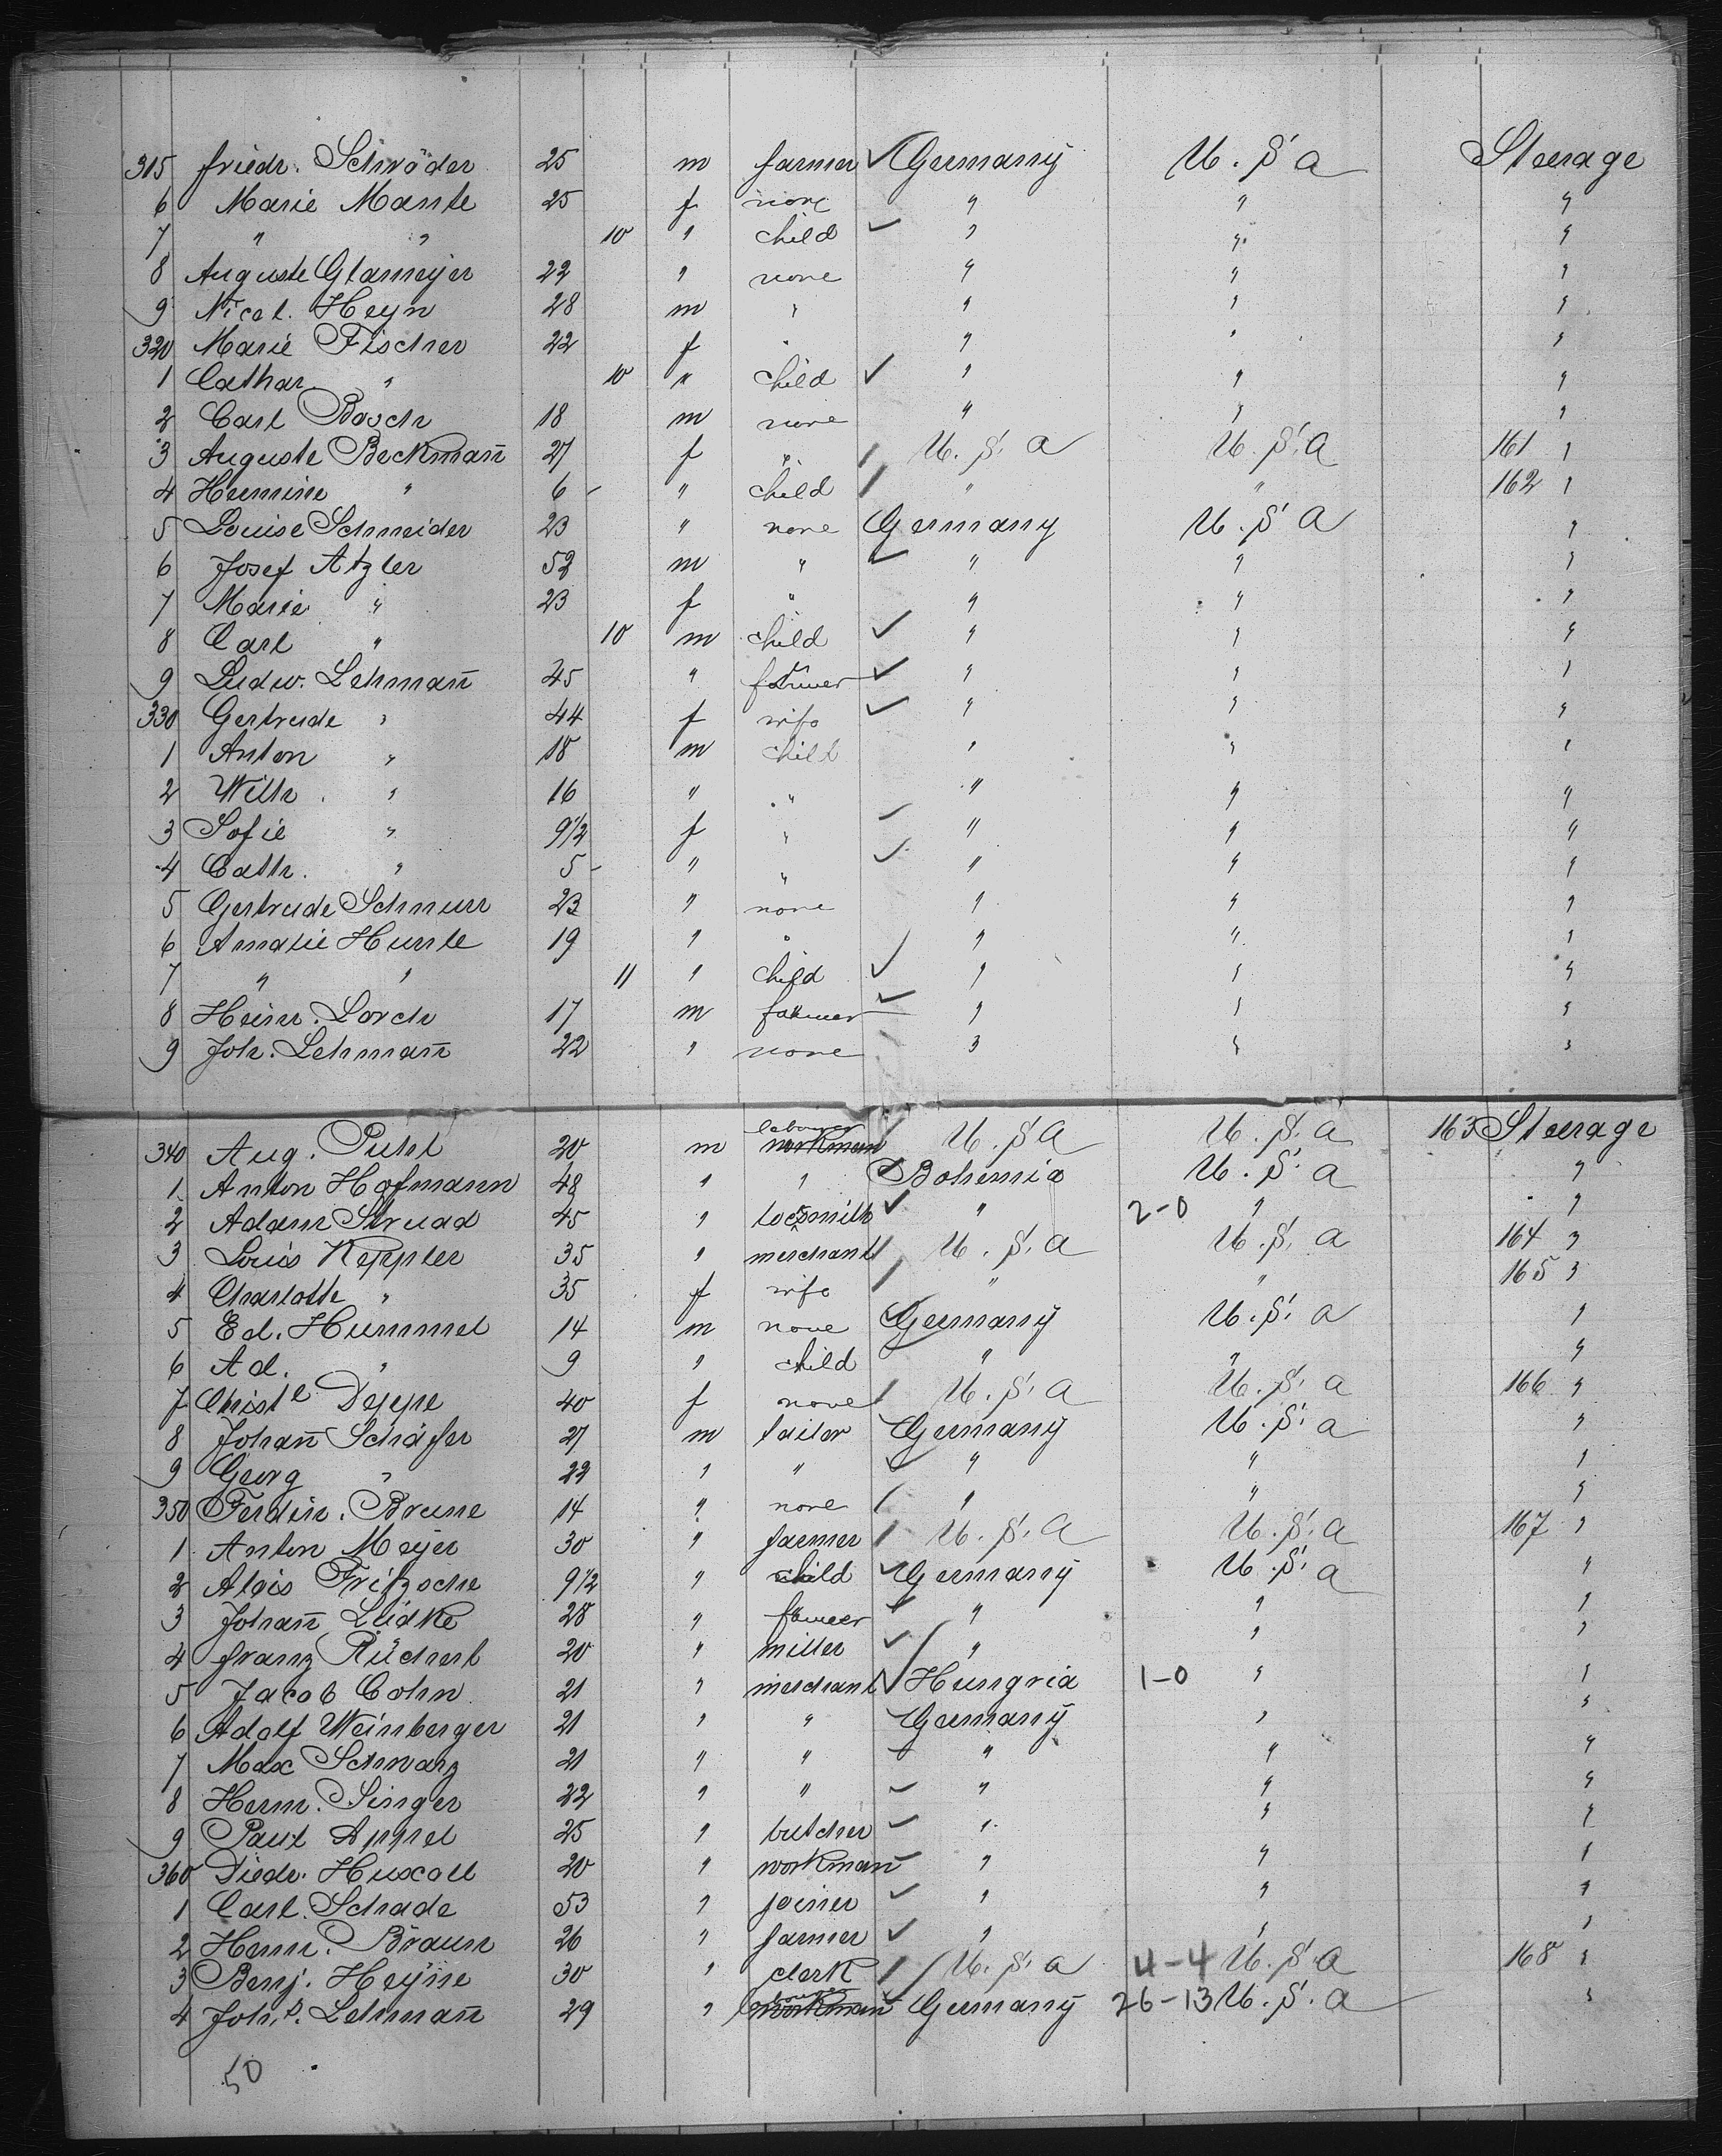 315 Friedr. Schröder 25 m farmer ✓ Germany U. S. a Steerage
6 Marie Mante 25 f none " " "
7 " " 10 " child ✓ " " "
8 Auguste Glameyer 22 " none " " "
9 Nicol. Heyn 28 m " " " "
320 Marie Fischer 22 f " " " "
1 Cathar. " 10 " child ✓ " " "
2 Carl Bosch 18 m none " " "
3 Auguste Beckmañ 27 f " / U. S. a U. S. a 161 "
4 Hermine " 6 - " child / " " 162 "
5 Louise Schneider 23 " none Germany U. S. a "
6 Josef Atzler 52 m " ✓ " " "
7 Marie " 23 f " " " "
8 Carl " 10 m child ✓ " " "
9 Ludw. Lehmañ 45 " farmer ✓ " " "
330 Gertrude " 44 f wife ✓ " " "
1 Anton " 18 m child " " "
2 Wilh. " 16 " " " " "
3 Sofie " 9 1/2 f " ✓ " " "
4 Cath. " 5 - " " ✓ " " "
5 Gertrude Schnurr 23 " none " " "
6 Amalie Hurrle 19 " " " " "
7 " " 11 " child ✓ " " "
8 Heinr. Lorch 17 m farmer ✓ " " "
9 Joh. Lehmañ 22 " none " " "
340 Aug. Puhl 20 m labourer workman ✓ U. S. a U. S. a 163 Steerage
1 Anton Hofmann 48 " " ✓ Bohemia U. S. a "
2 Adam Strnad 45 " locksmith ✓ " 2-0 " "
3 Louis Keppler 35 " merchant / U. S. a U. S. a 164 "
4 Charlotte " 35 f wife / " " 165 "
5 Ed. Hummel 14 m none ✓ Germany U. S. a "
6 Ad. " 9 " child " " "
7 Christe Deppe 40 f none / U. S. a U. S. a 166 "
8 Johañ Schäfer 27 m tailor Germany U. S. a "
9 Georg " 22 " " ✓ " " "
350 Ferdin. Brune 14 " none / " " "
1 Anton Meyer 30 " farmer / U. S. a U. S. a 167 "
2 Alois Fritzsche 9 1/2 " child ✓ Germany U. S. a "
3 Johañ Lüdke 28 " farmer ✓ " " "
4 Franz Rüchert 20 " miller ✓ / " " "
5 Jacob Cohn 21 " merchant ✓ / Hungria 1-0 " "
6 Adolf Weinberger 21 " " Germany " "
7 Max Schwarz 21 " " - " " "
8 Herm. Singer 22 " " ✓ " " "
9 Paul Appel 25 " butcher ✓ " " "
360 Diedr. 20 " workmañ " " "
1 Carl. Schade 53 " joiner ✓ " " "
2 Herm. Braun 26 " farmer ✓ " " "
3 Benj. Heyne 30 " clerk / / U. S. a 4-4 U. S. a 168 "
4 Joh. Lehmañ 29 " workman ✓ Germany 26-13 U. S. a "
50